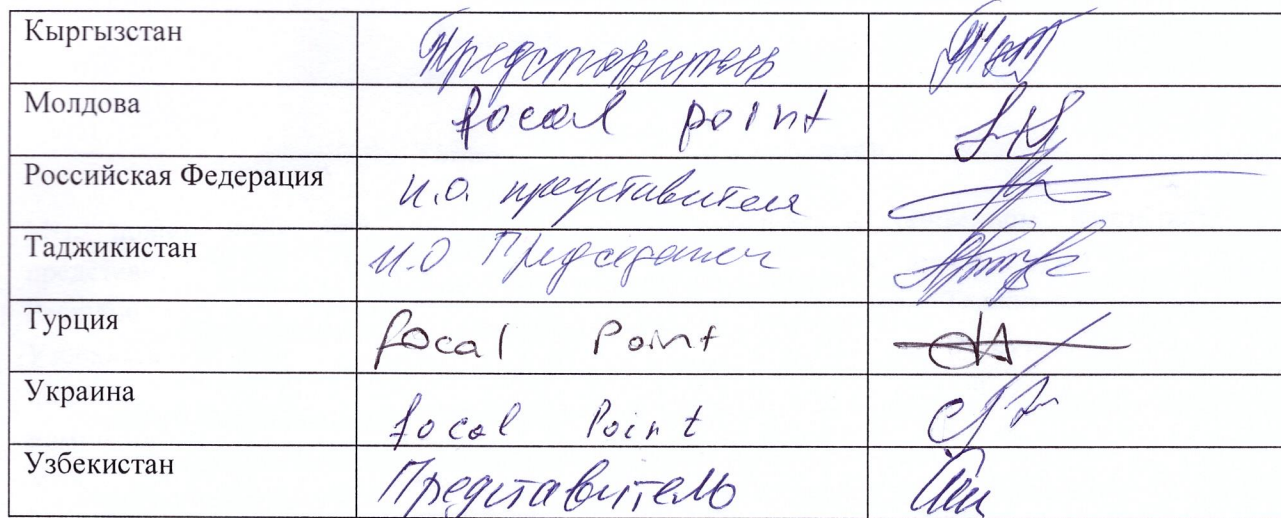 Кыргызстан Представитель
Молдова focal point
Российская Федерация И.О. представителя
Таджикистан И.О Председател
Турция focal Point
Украина focal Point
Узбекистан Представитель